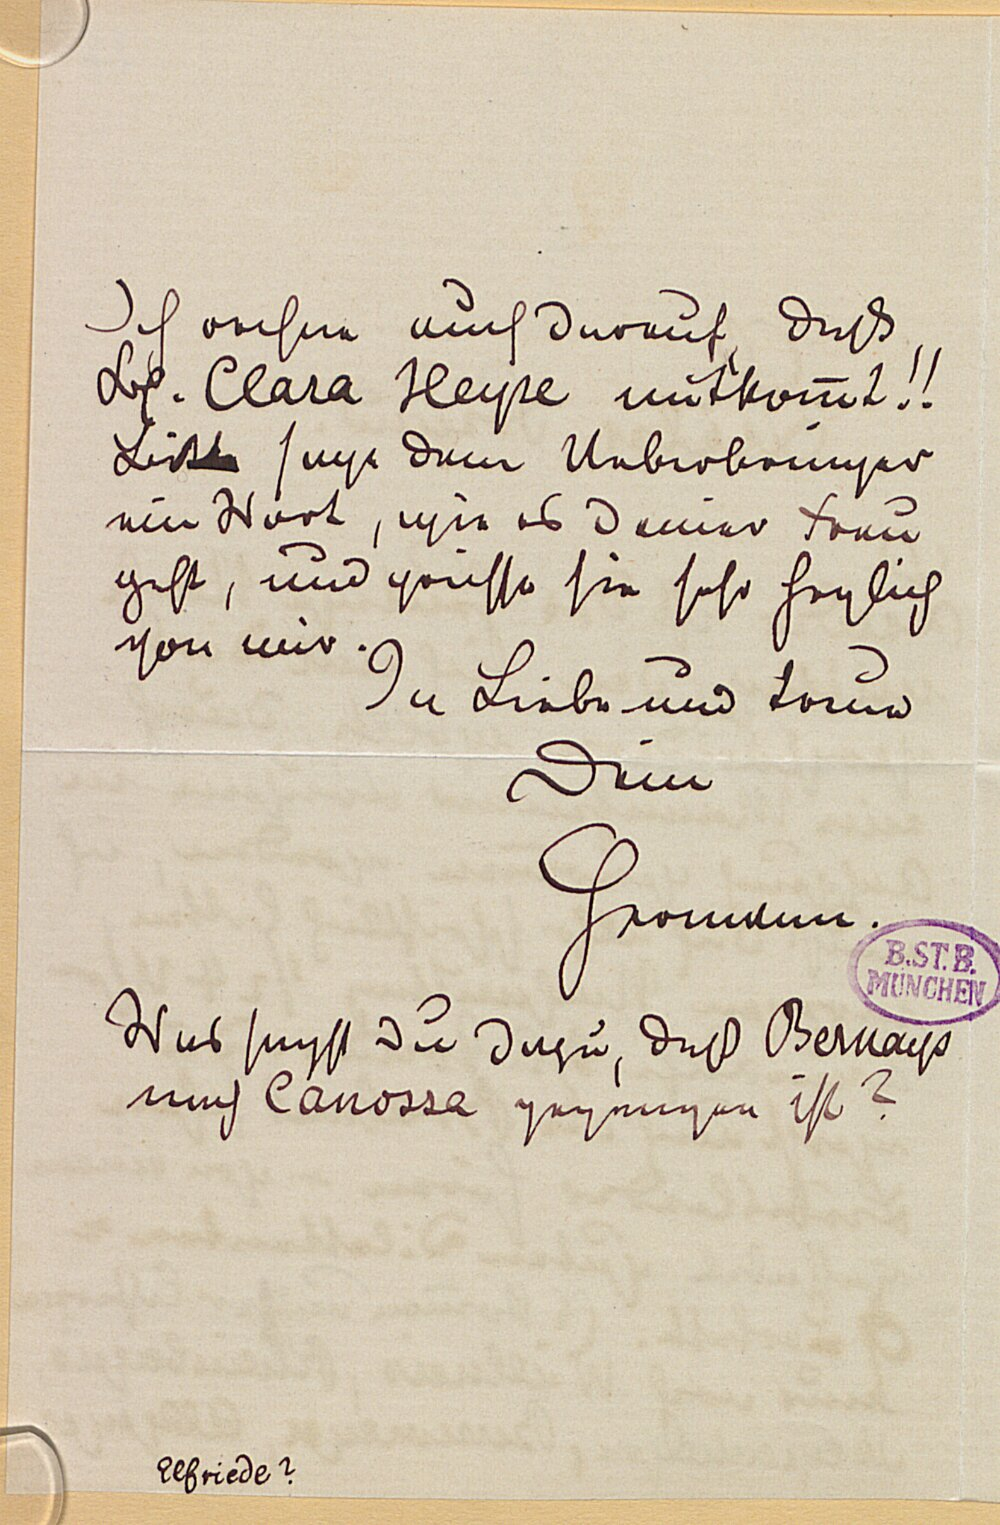 Ich rechne auch darauf, daß
Frl. Clara Heyse mitkom̅t!!
Bitte sage dem Ueberbringer
ein Wort, wie es Deiner Frau
geht, und grüsse sie sehr herzlich
von mir.
In Liebe und Treue
Dein
Hermann.
B.ST.B.
MÜNCHEN
Was sagst Du dazu, daß Bernays
nach Canossa gegangen ist?
Elfriede?